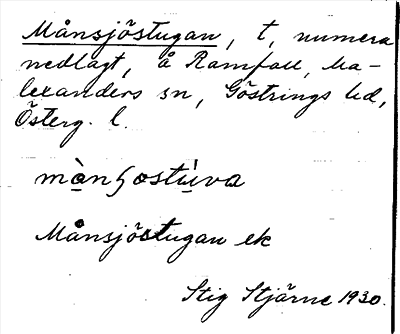 Månsjöstugan, t, numera
nedlagt, å Ramfall, Ma-
lexanders sn, Göstrings hd,
Österg. l.
Månsjöstugan ek
Stig Stjärne 1930.